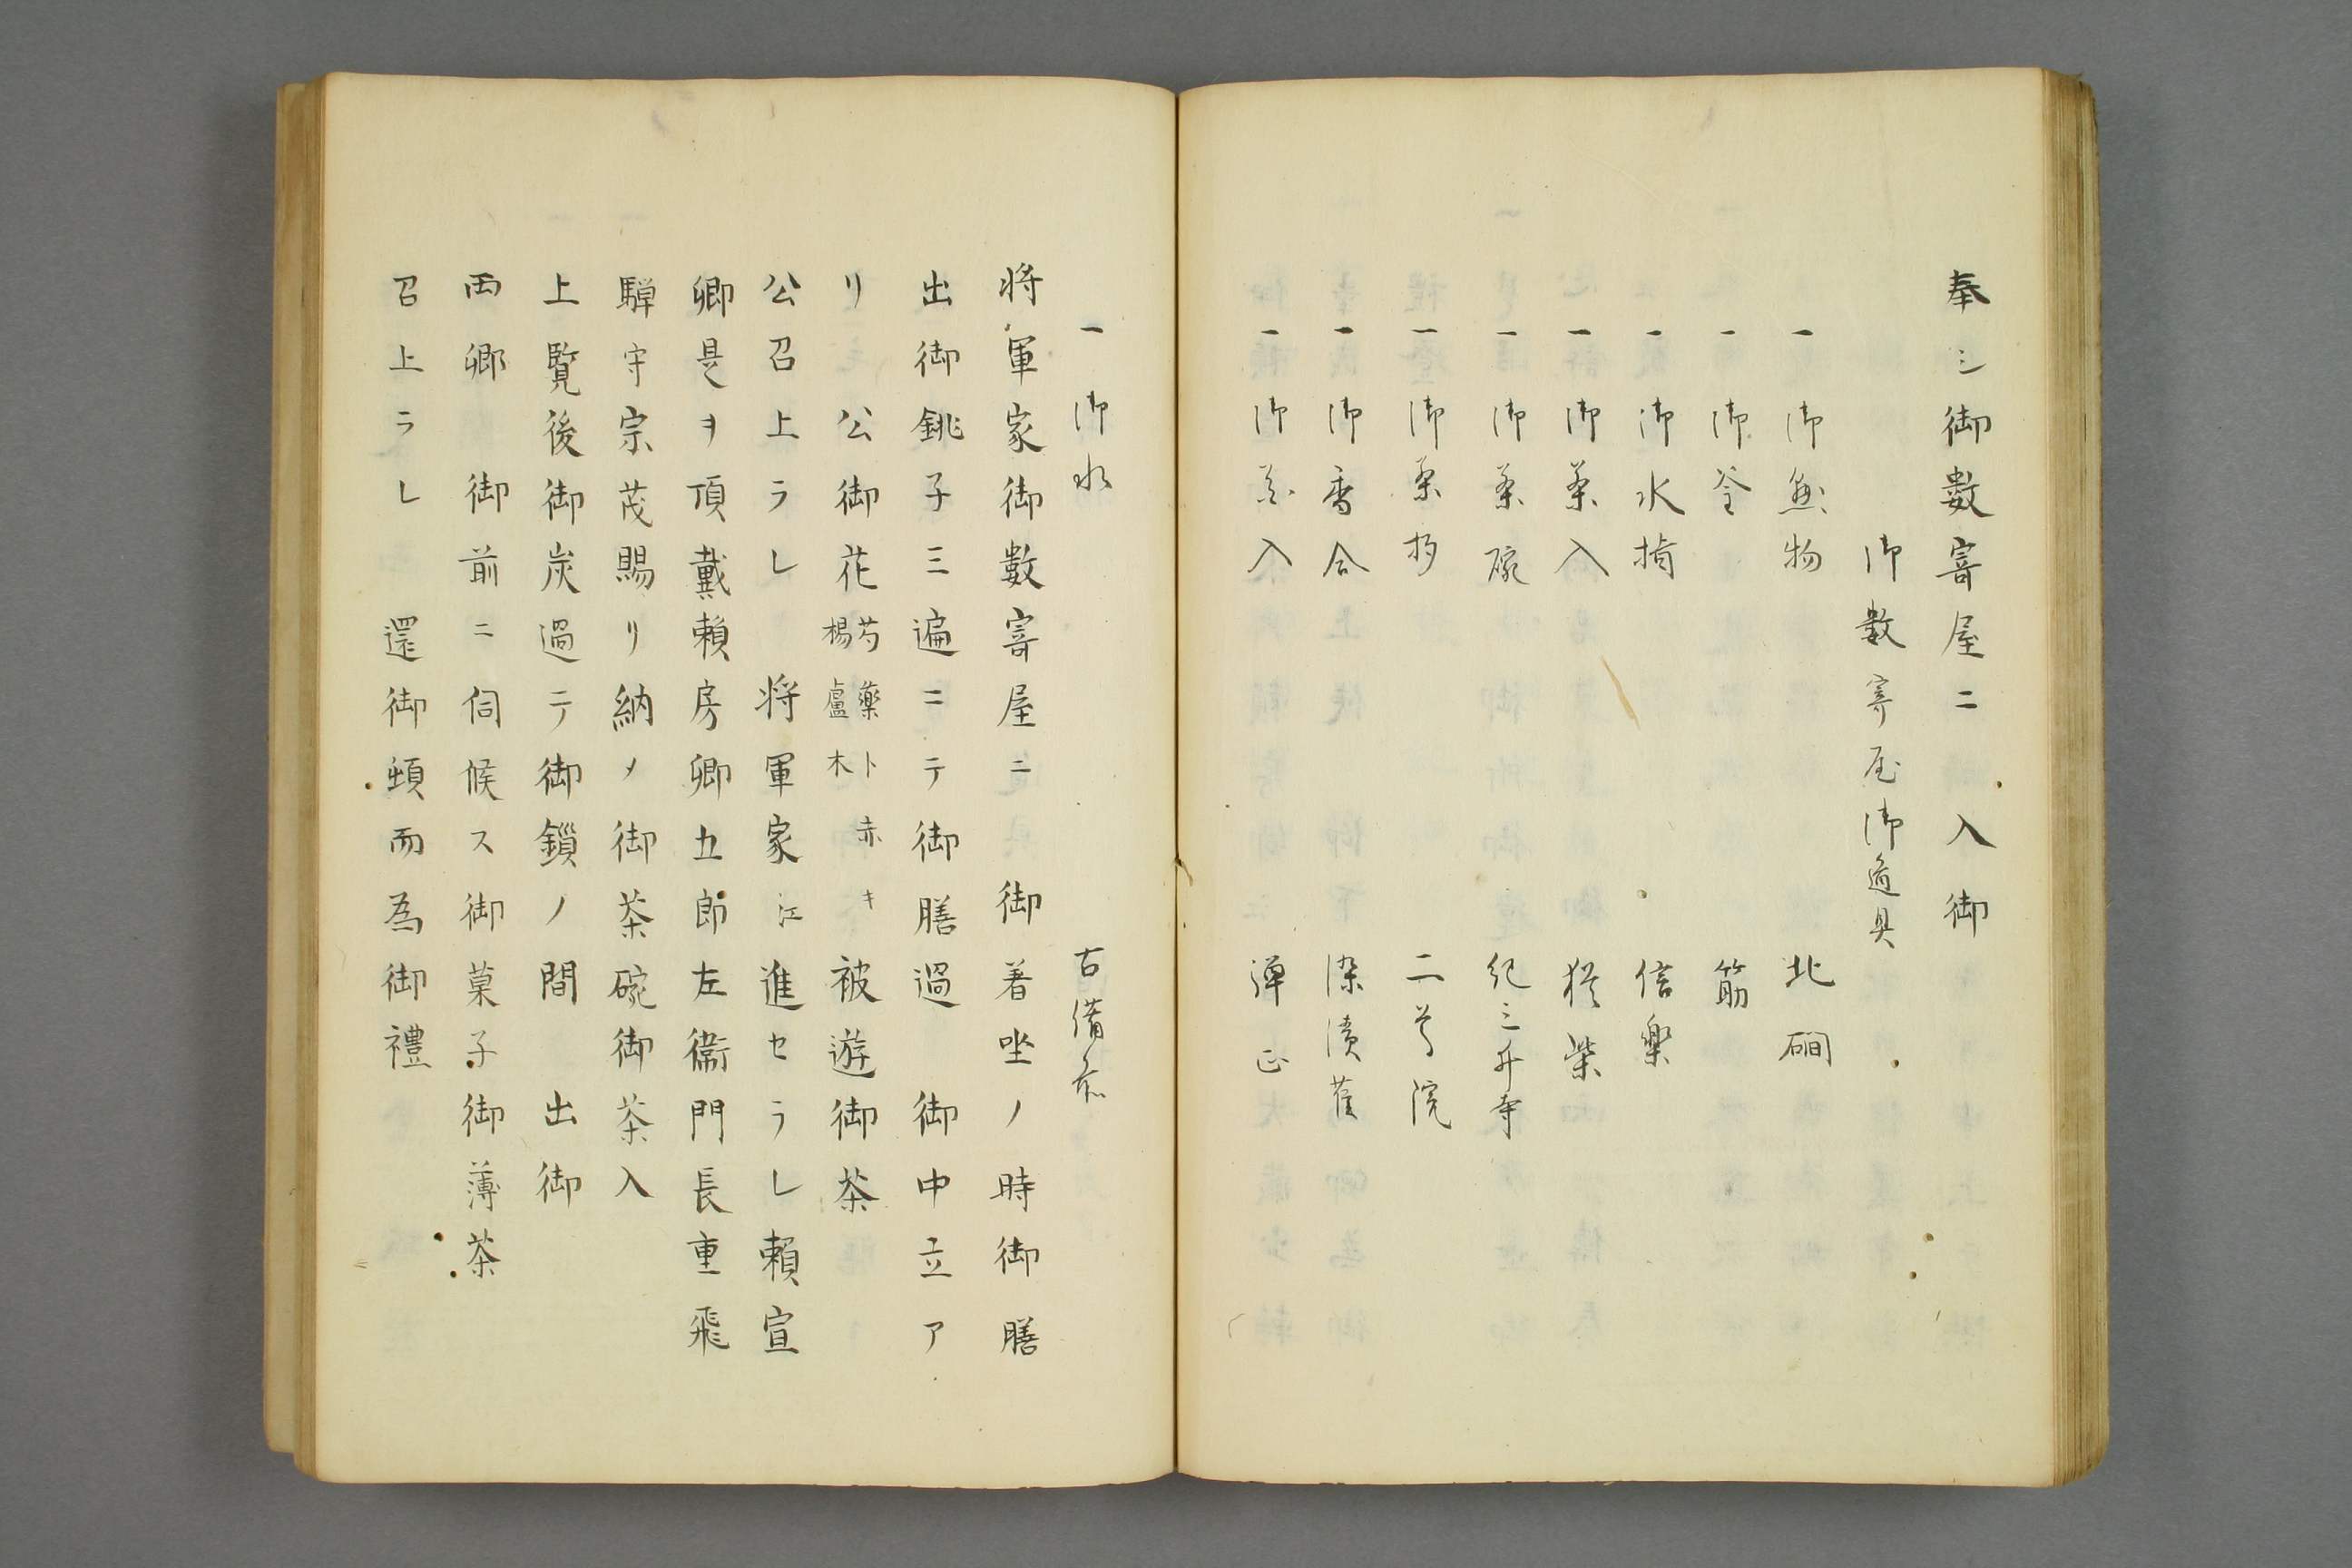 奉シ御數寄屋ニ　入御
御數寄屋御道具
一御懸物　北磵
一御釜　筋
一御水指　信樂
一御茶入　猿柴
一御茶碗　紀三井寺
一御茶杓　二尊院
一御香合　染漬菊
一御花入　彈正
一御水　古備前
將軍家御數寄屋ニ　御着坐ノ時御膳
出御銚子三遍ニテ御膳過　御中立ア
リ　公御花芍藥卜赤キ楊盧木被遊御茶
公召上ラレ　將軍家江進セラレ頼宣
卿是ヲ頂戴頼房卿五郎左衞門長重飛
騨守宗茂賜リ納メ御茶碗御茶入
上覽後御炭過テ御鎖ノ間　出御
両卿　御前ニ伺候ス御菓子御薄茶
召上ラレ　還御頓而為御禮